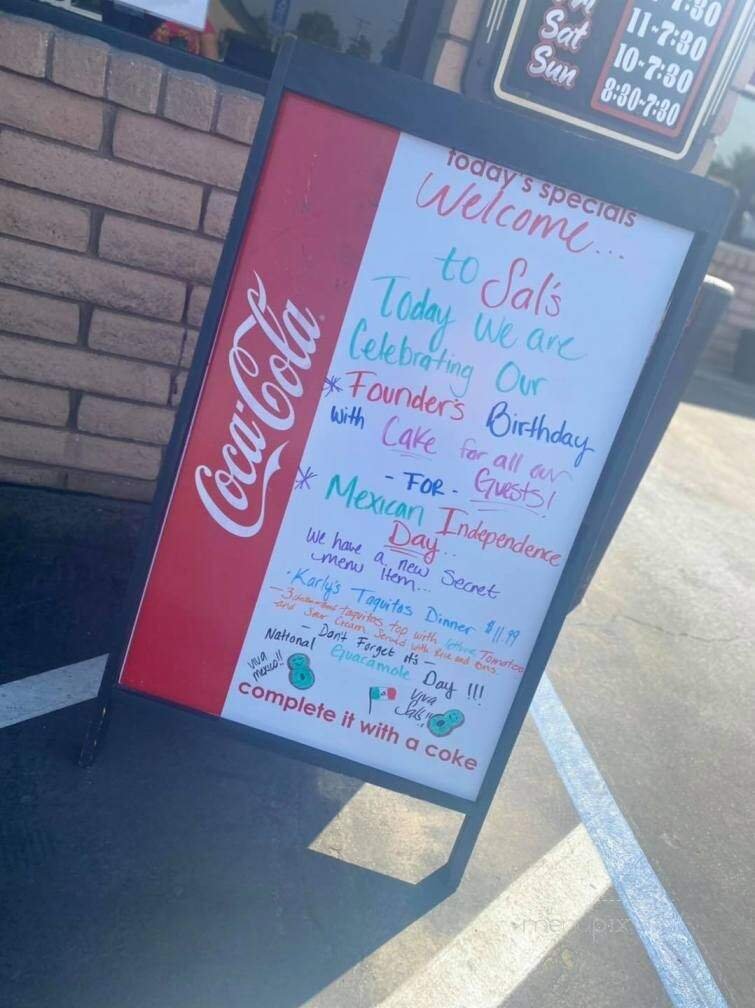 7:30
Sat 11-7:30
Sun 10-7:30
8:30-7:30
Coca-Cola
today's specials
Welcome...
to Sal's
Today We are
Celebrating Our
* Founder's Birthday
with Cake for all our
- FOR - Guests!
* Mexican Independence
Day...
We have a new Secret
menu Item...
· Karly's Taquitos Dinner $11.99
- 3 taquitos top with lettuce Tomatoe
and Sour Cream Served with Rice and Bns.
- Don't Forget it's -
National Guacamole Day !!!
Viva
mexico!!
Viva
Sals!!
complete it with a coke